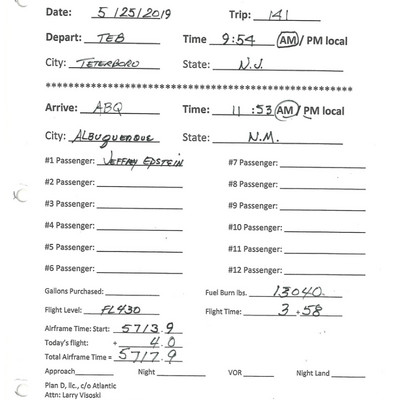 Date: 5/25/2019 Trip: 141
Depart: TEB Time 9:54 AM/ PM local
City: TETERBORO State: N.J.
************************************************************
Arrive: ABQ Time: 11:53 AM/ PM local
City: ALBUQUERQUE State: N.M.
#1 Passenger: JEFFREY EPSTEIN #7 Passenger:
#2 Passenger: #8 Passenger:
#3 Passenger: #9 Passenger:
#4 Passenger: #10 Passenger:
#5 Passenger: #11 Passenger:
#6 Passenger: #12 Passenger:
Gallons Purchased: Fuel Burn lbs. 13040.
Flight Level: FL430 Flight Time: 3 + 58
Airframe Time: Start: 5713.9
Today's flight: + 4.0
Total Airframe Time = 5717.9
Approach Night VOR Night Land
Plan D, llc., c/o Atlantic
Attn: Larry Visoski